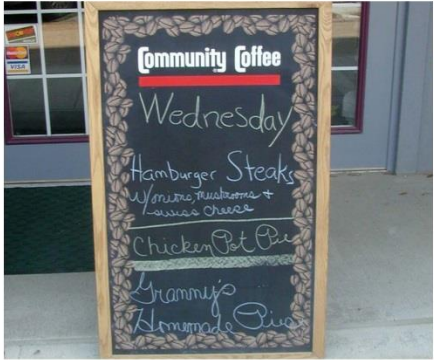 Community Coffee
Wednesday
Hamburger Steaks
w/onions, mushrooms +
swiss cheese
Chicken Pot Pie
Granny's
Homemade Pies
VISA